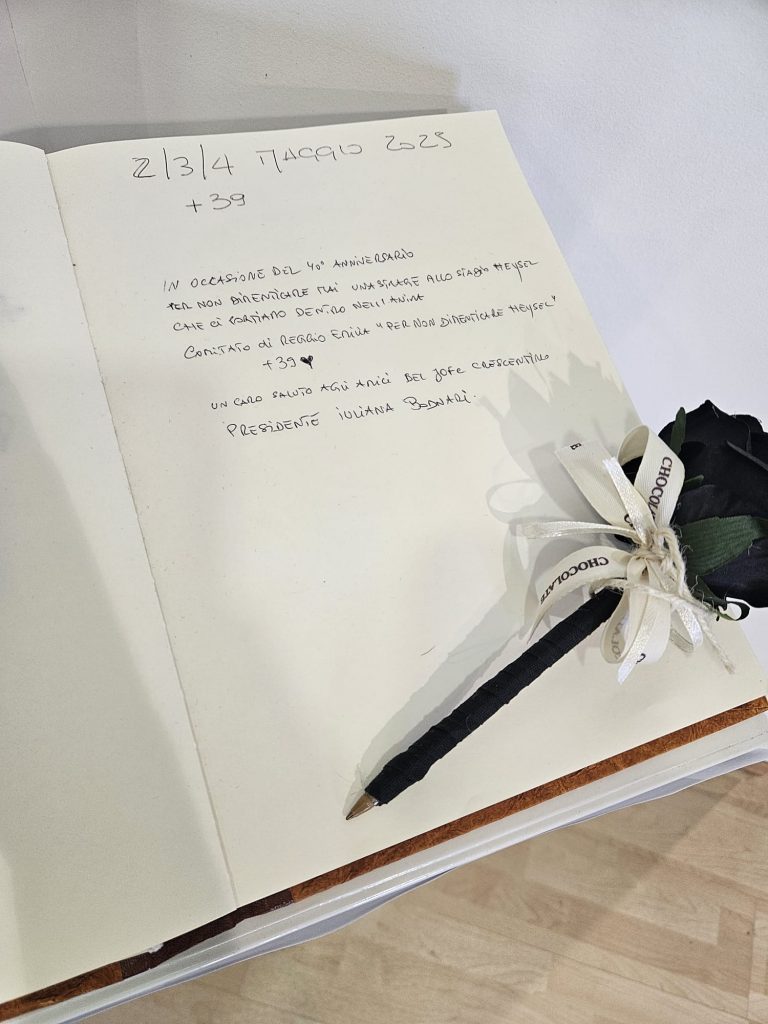 2/3/4 MAGGIO 2025
+39
IN OCCASIONE DEL 40° ANNIVERSARIO
PER NON DIMENTICARE MAI UNA STRAGE ALLO STADIO HEYSEL
CHE CI PORTIAMO DENTRO NELL'ANIMA
COMITATO di REGGIO EMILIA "PER NON DIMENTICARE HEYSEL"
+39 ♥
UN CARO SALUTO AGLI AMICI DEL JOFC CRESCENTINO
PRESIDENTE IULIANA BODNARI.
CHOCOLATE
CHOCOLATE